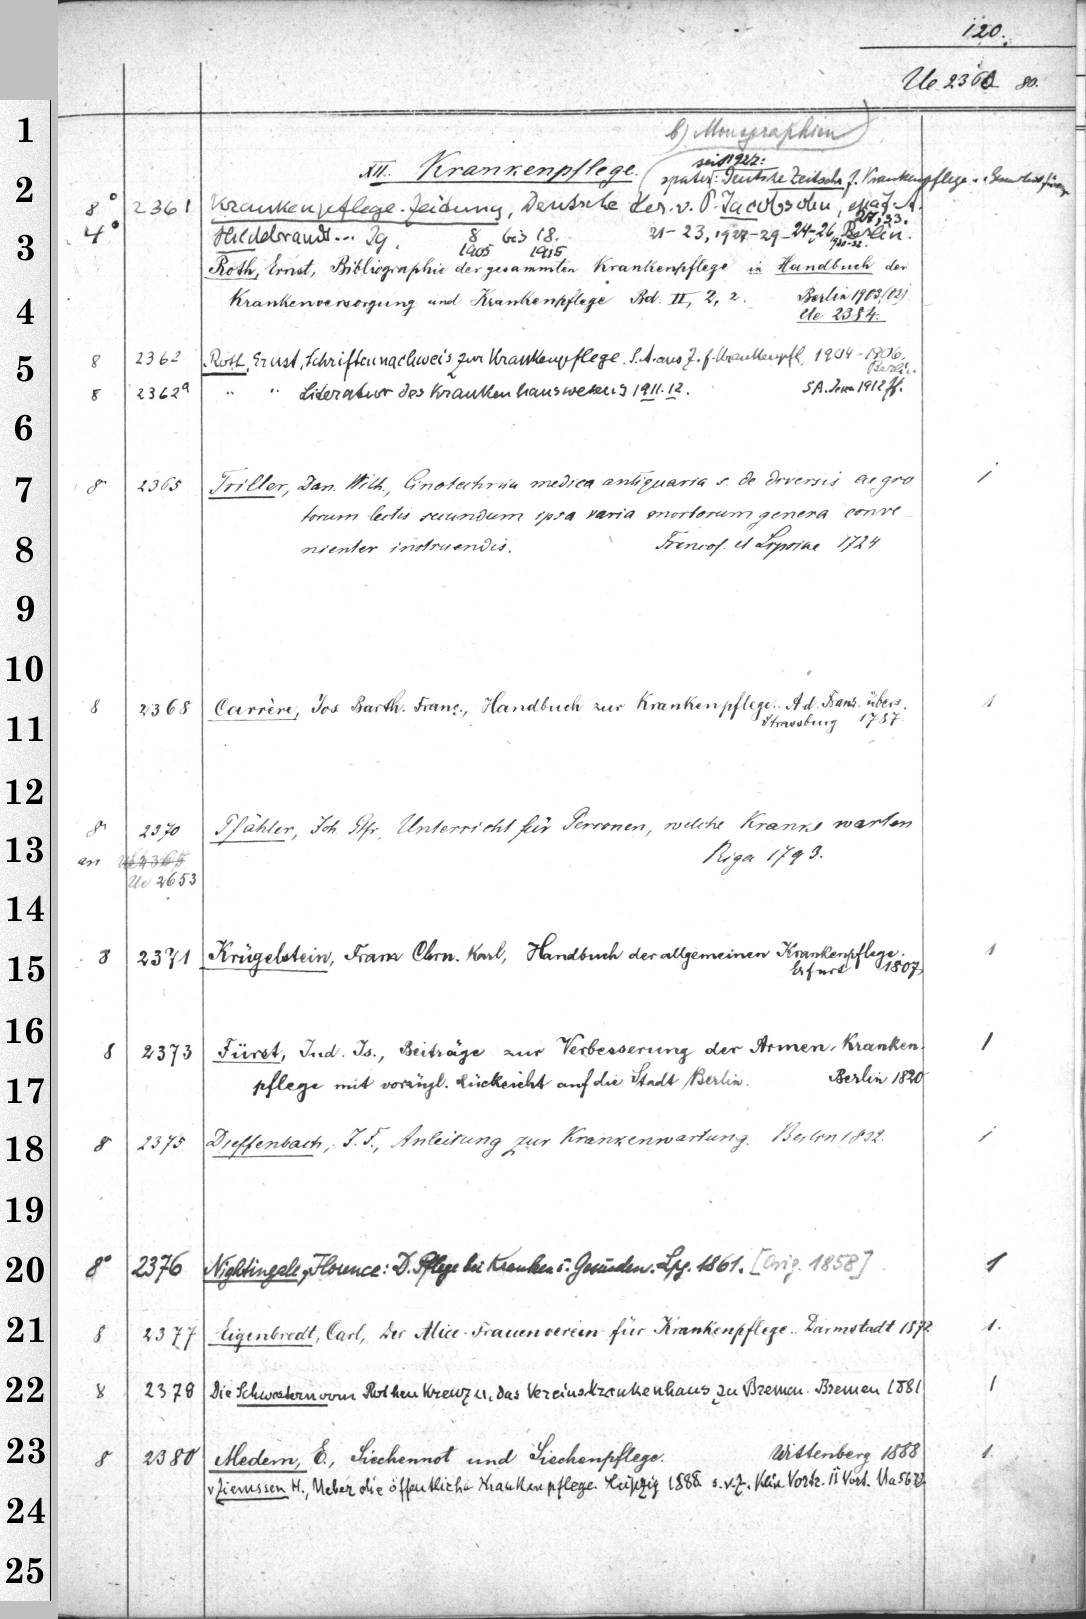 120.
Ue 2360 80.
b) Monographien
XII. Krankenpflege.
seit 1927:
später: Deutsche Zeitschr. f. Krankenpflege u.
8° 2361 Krankenpflege-Zeitung, Deutsche Her. v. P. Jacobsohn,
4° Hildebrandt... Jg. 8 bis 18. 21-23, 1927-29 - 24-26, Berlin.
27, 33.
1905 1915 1930-32.
Roth, Ernst, Bibliographie der gesammten Krankenpflege in Handbuch der
Krankenversorgung und Krankenpflege Bd. II, 2, 2. Berlin 1903 (02)
Ue 2384.
8 2362 Roth, Ernst, Schriftennachweis zur Krankenpflege. S.A. aus Z. f. Krankenpfl. 1904-1906.
Berlin.
8 2362a " " Literatur des Krankenhauswesens 1911.12. SA. Jena 1912 ff.
8 2365 Triller, Dan. Wilh., Clinotechnia medica antiquaria s. de diversis aegro 1
torum lectis secundum ipsa varia morborum genera conve-
nienter instruendis. Francof. et Lipsiae 1724
8 2368 Carrère, Jos. Barth. Franç., Handbuch zur Krankenpflege.. A d. Franz. übers. 1
Strassburg 1787.
8 2370 Pfähler, Joh. Pfr., Unterricht für Personen, welche Kranke warten
an Ue 2365 Riga 1793.
Ue 2653
8 2371 Krügelstein, Franz Chrn. Karl, Handbuch der allgemeinen Krankenpflege. 1
Erfurt 1807
8 2373 Fürst, Jud. Is., Beiträge zur Verbesserung der Armen-Kranken- 1
pflege mit vorzügl. Rücksicht auf die Stadt Berlin. Berlin 1820
8 2375 Dieffenbach, J. F., Anleitung zur Krankenwartung. Berlin 1832. 1
8° 2376 Nightingale, Florence: D. Pflege bei Kranken u. Gesunden. Lpz. 1861. [Orig. 1858] 1
8 2377 Eigenbrodt, Carl, Der Alice-Frauenverein für Krankenpflege.. Darmstadt 1872 1.
8 2378 Die Schwestern vom Rothen Kreuz u. das Vereinskrankenhaus zu Bremen. Bremen 1881 1
8 2380 Medem, E., Siechennot und Siechenpflege. Wittenberg 1888 1.
v Ziemssen H., Ueber die öffentliche Krankenpflege. Leipzig 1888 s. v. Z. Klin. Vortr. II Vort. Ua 5672
1
2
3
4
5
6
7
8
9
10
11
12
13
14
15
16
17
18
19
20
21
22
23
24
25